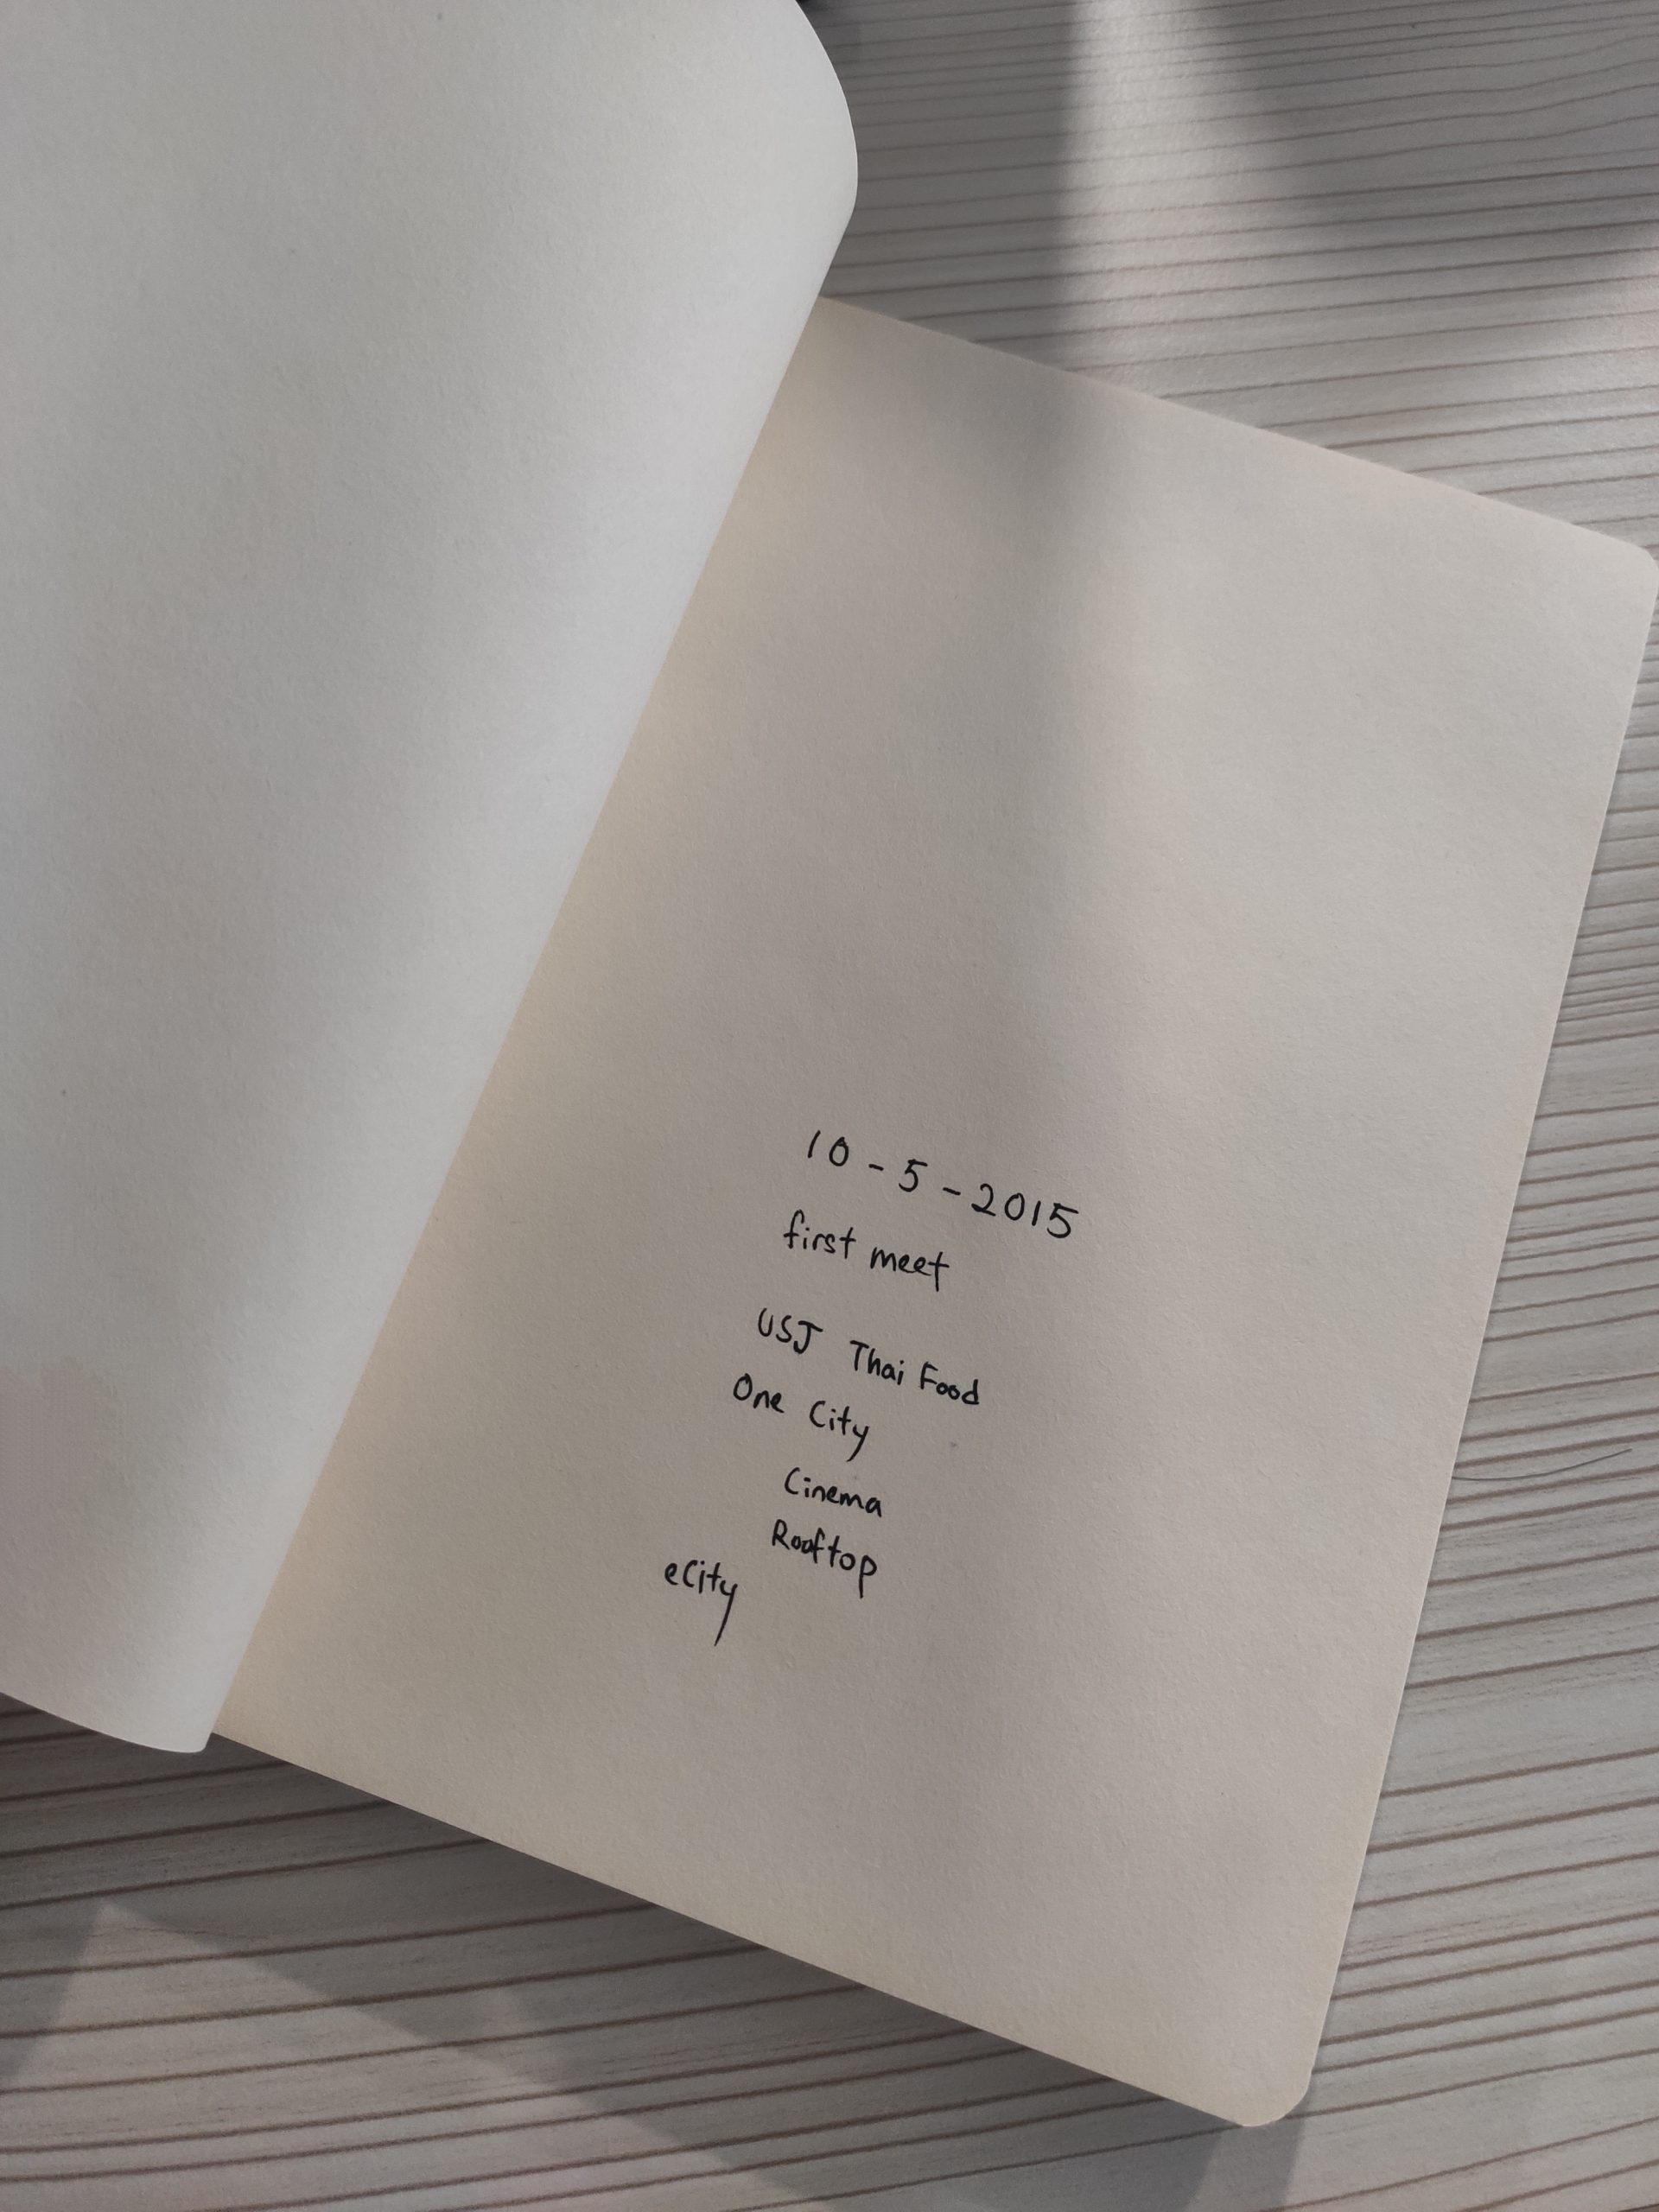 10 - 5 - 2015
first meet
USJ Thai Food
One City
Cinema
Rooftop
eCity